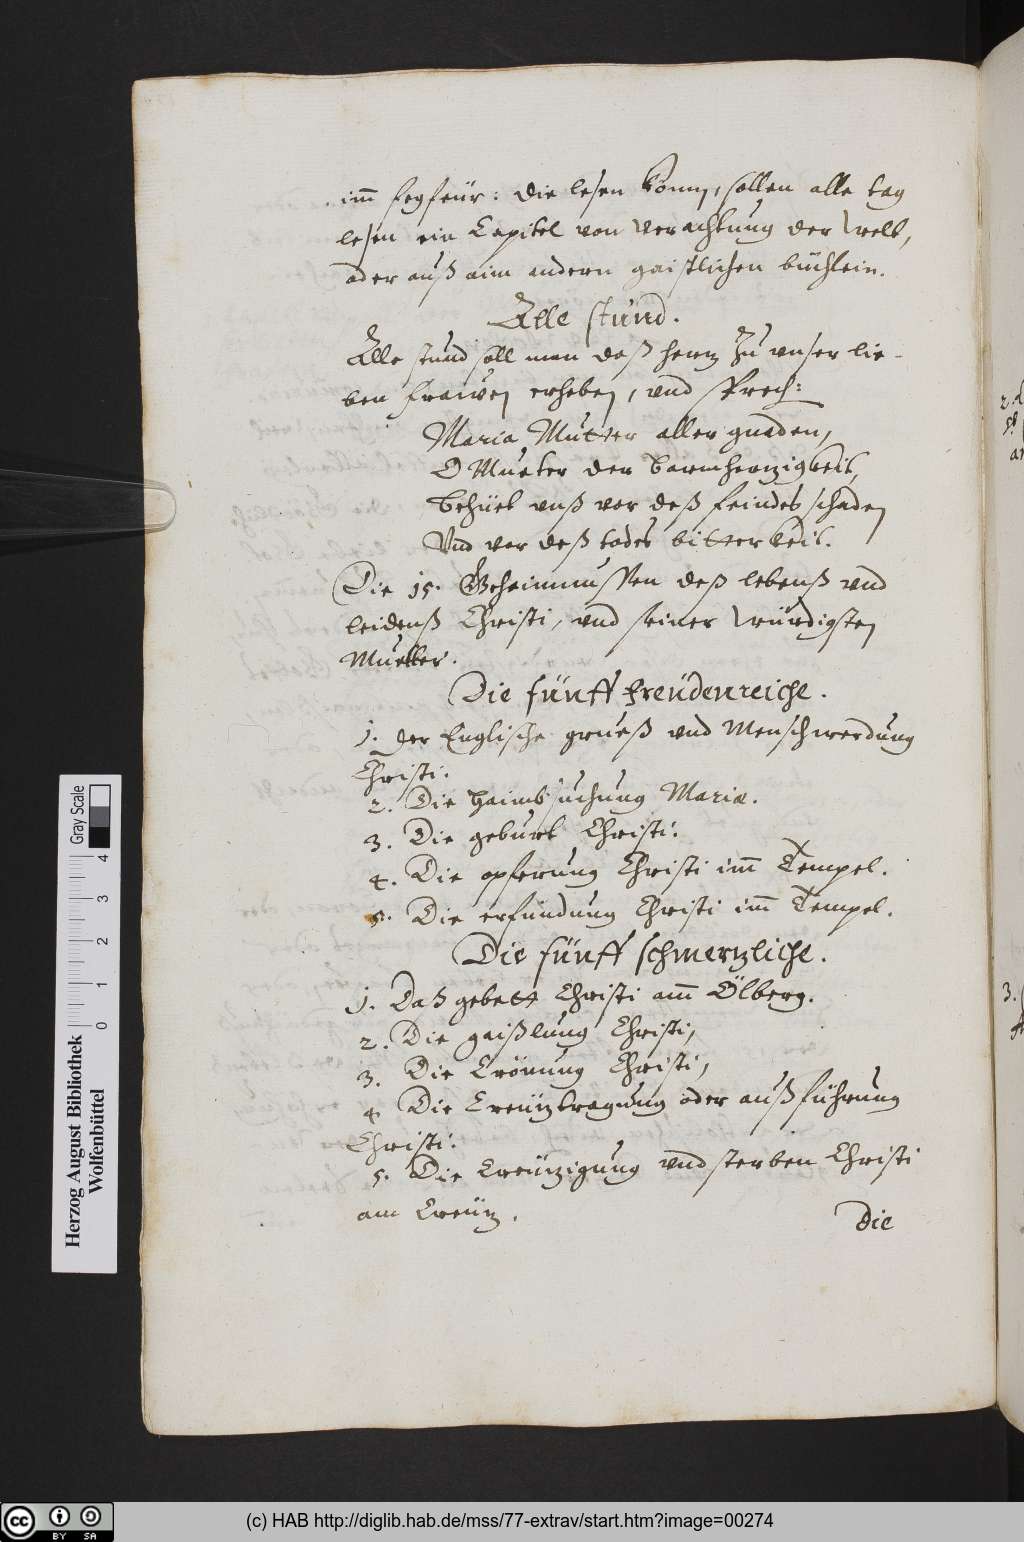 im̄ fegfeür: die lesen könn, sollen alle tag
lesen ein Capitel von verachtung der Welt,
oder auß aim andern gaistlichen büchlein.
Alle stund.
Alle stund soll man daß hertz zu vnser lie-
ben frawen erheben, vnd sprech:
Maria Mutter aller gnaden,
O Mueter der barmhertzigkeit,
behüet vnß vor deß feindes schaden
Vnd vor deß todes bitterkeit.
Die 15. Geheimnussen deß lebenß vnd
leidenß Christi, vnd seiner würdigsten
Muetter.
Die fünff freüdenreiche.
1. der Englische grueß vnd Menschwerdung
Christi.
2. Die haimbsuchung Mariæ.
3. Die geburt Christi.
4. Die opferung Christi im̄ Tempel.
5. Die erfindung Christi im̄ Tempel.
Die fünff schmertzliche.
1. Daß gebett Christi am̄ Ölberg.
2. Die gaißlung Christi,
3. Die Crönung Christi,
4 Die Creütztragung oder außführung
Christi.
5. Die Creützigung vnd sterben Christi
am Creütz.
Die
Herzog August Bibliothek
Wolfenbüttel
0 1 2 3 4
Gray Scale
2.
3.
(c) HAB http://diglib.hab.de/mss/77-extrav/start.htm?image=00274
cc BY SA